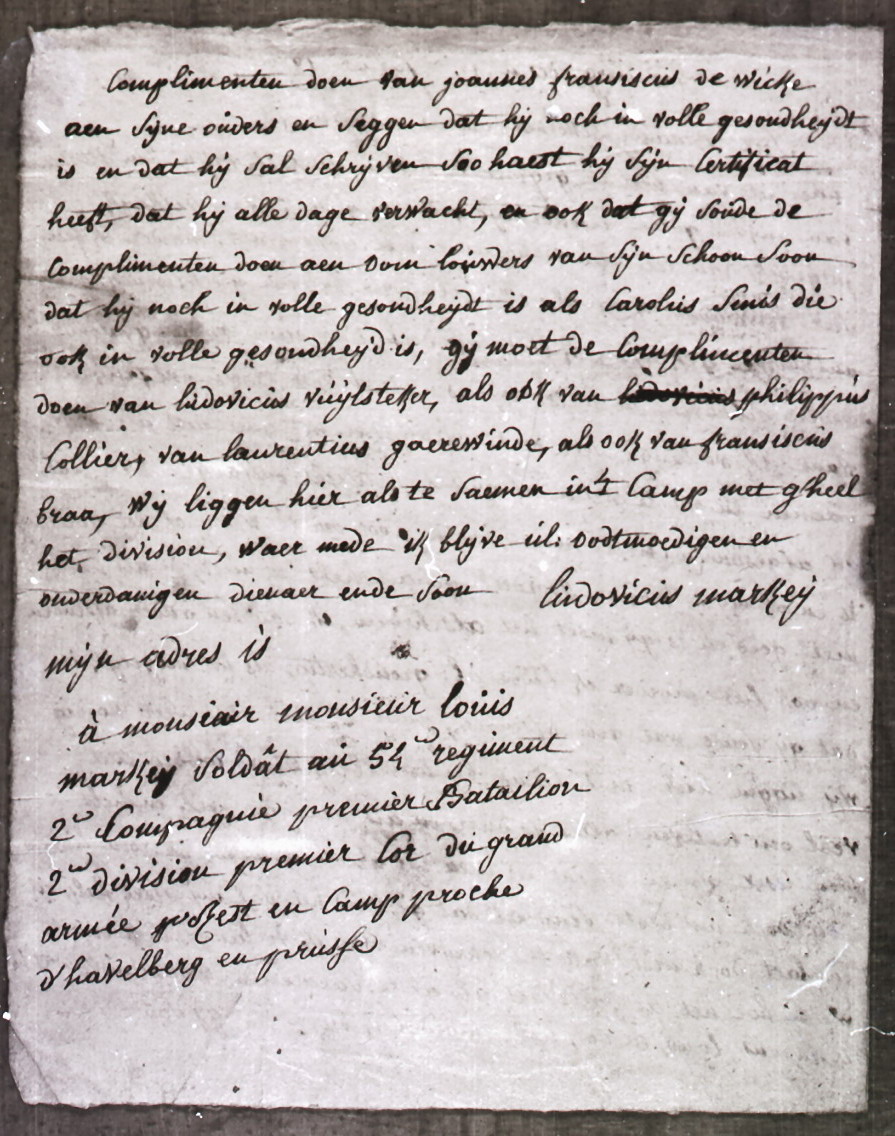 Complimenten doen van joannes fransiscus de wicke
aen sijne ouders en seggen dat hij noch in volle gesondheijdt
is en dat hij sal schrijven soo haest hij sijn Certificat
heeft, dat hij alle dage verwacht, en ook dat gij soude de
Complimenten doen aen Dom louwers van sijn schoon soon
dat hij noch in volle gesondheijdt is als Carolus Smis die
ook in volle gesondheijd is, gij moet de Complimenten
doen van ludovicus vuijlsteker, als ook van ludovicus philippus
Collier, van laurentius gaerewinde, als ook van fransiscus
braa, wij liggen hier als te saemen in't Camp met g'heel
het division, waer mede ik blijve ul: oodtmoedigen en
onderdanigen dienaer ende soon ludovicus markeij
mijn adres is
à monsiair monsieur louis
markeij soldât au 54 regiment
2 Compagnie premier Batailion
2 division premier Cor du grand
armée en Camp proche
d'havelberg en prusse